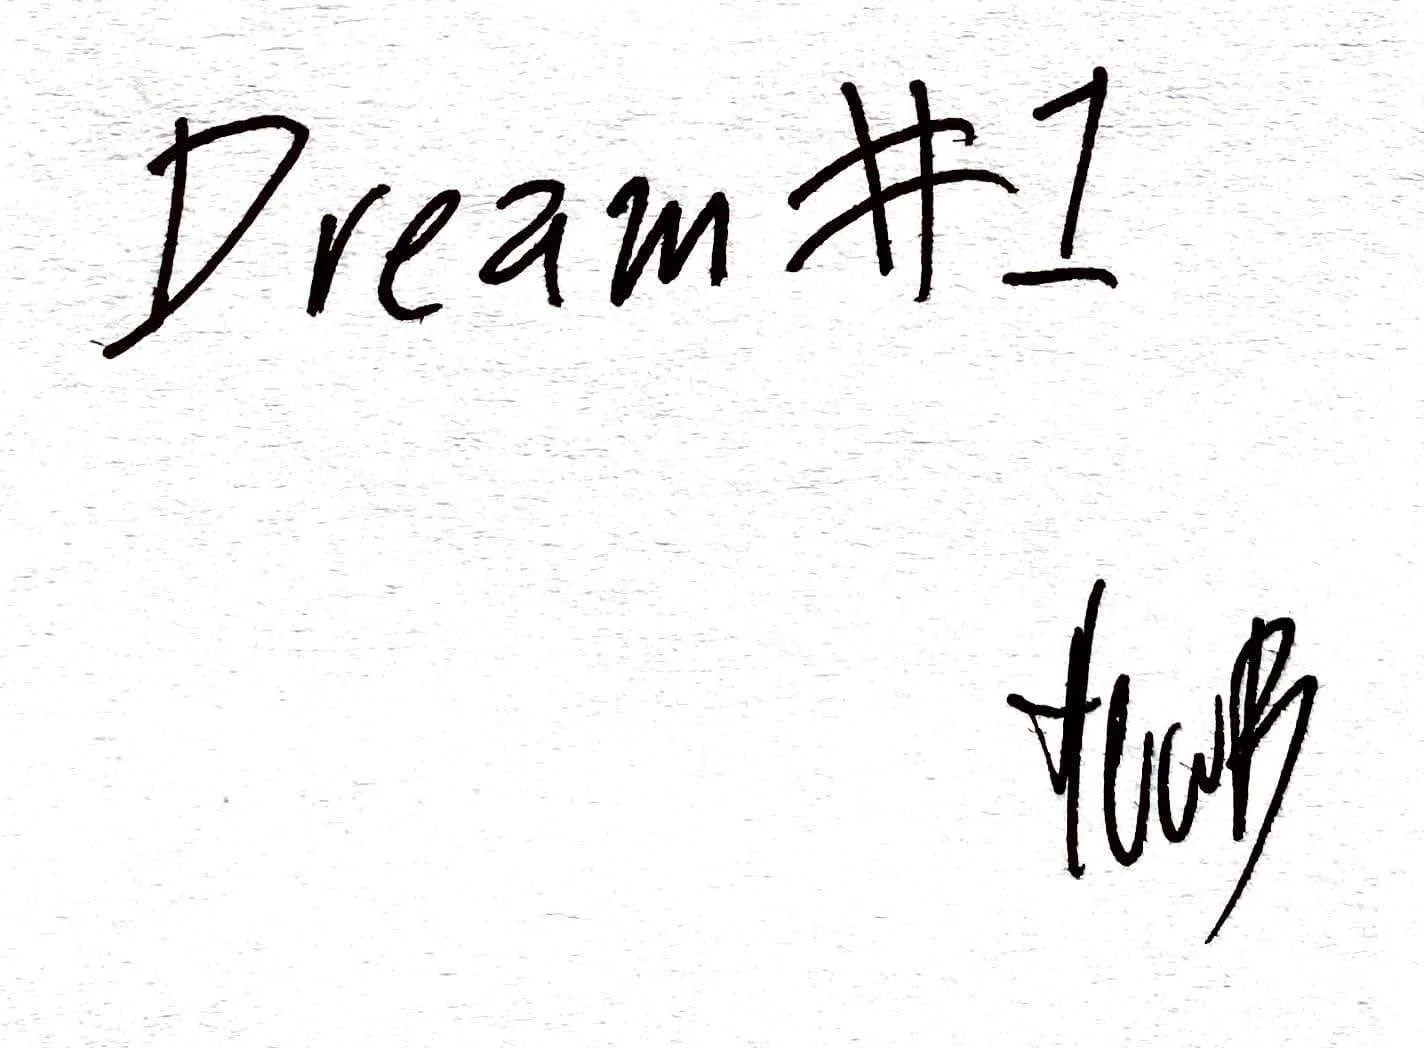 Dream #1